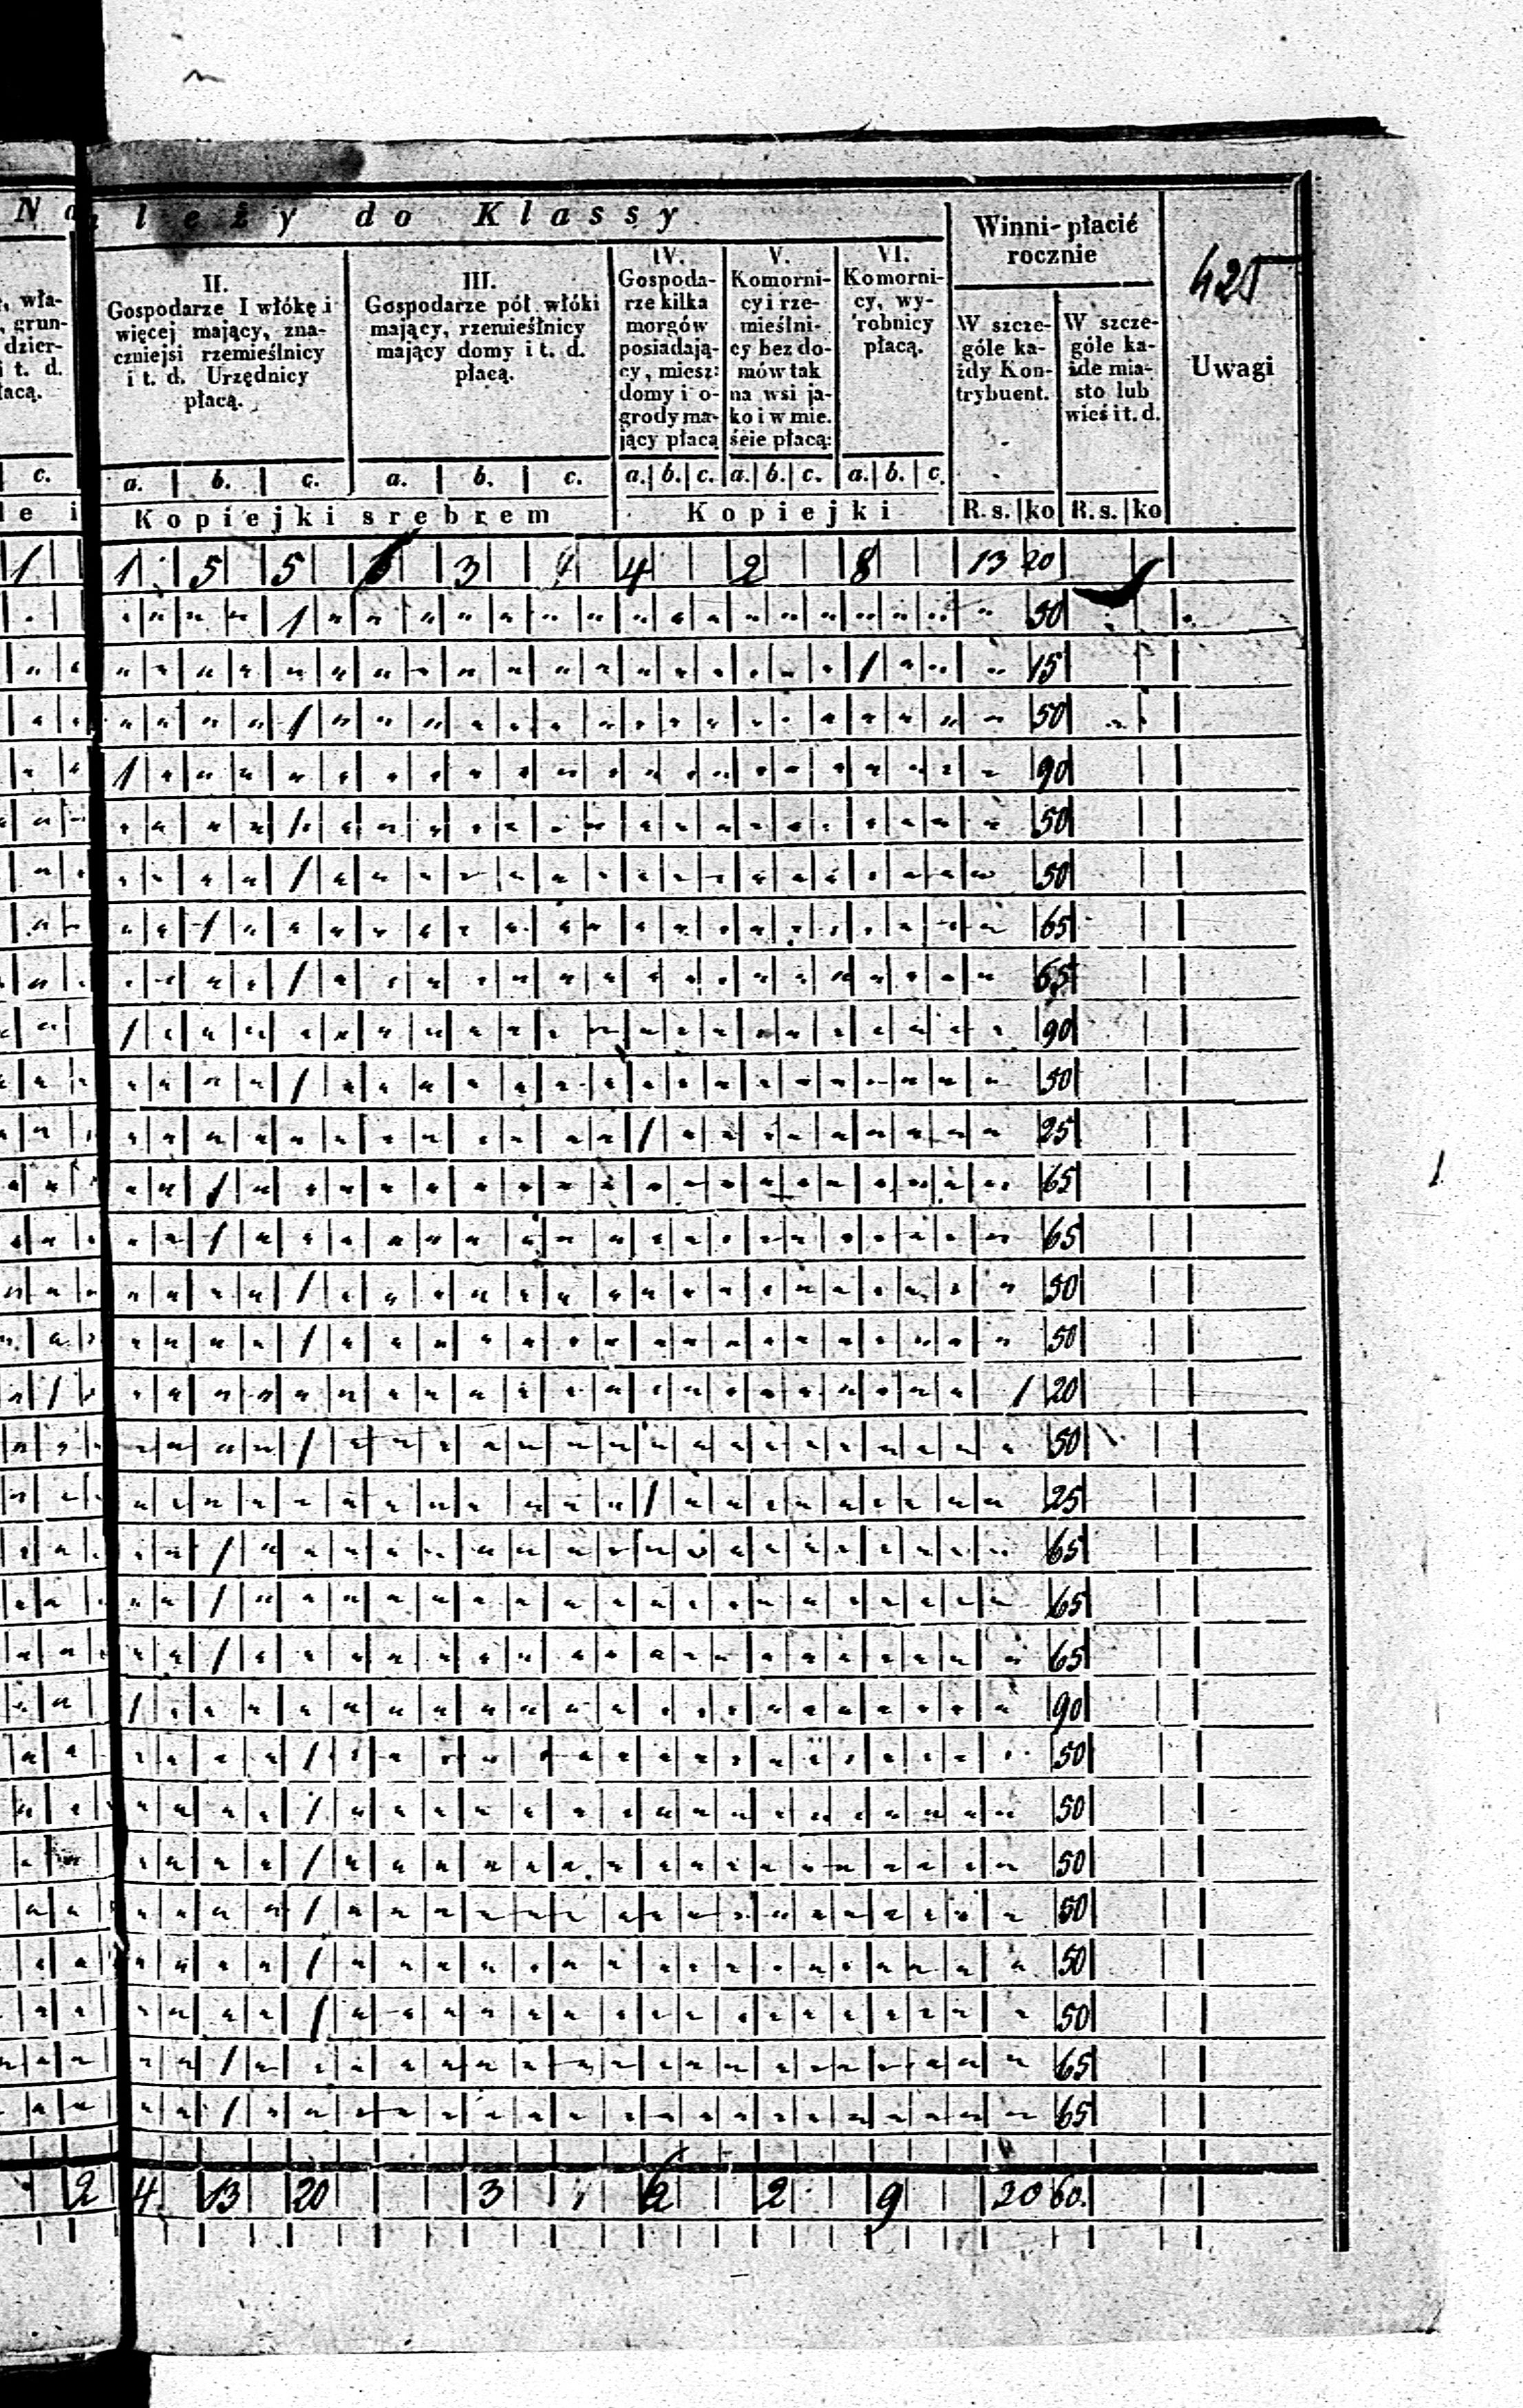 Należy do Klassy
Winni płacić
rocznie
425
Uwagi
II.
Gospodarze I włókę i
więcej mający, zna-
czniejsi rzemieślnicy
i t. d. Urzędnicy
płacą.
III.
Gospodarze pół włóki
mający, rzemieślnicy
mający domy i t. d.
płacą.
IV.
Gospoda-
rze kilka
morgów
posiadają-
cy, miesz:
domy i o-
grody ma-
jący płacą
V.
Komorni-
cy i rze-
mieślni-
cy bez do-
mów tak
na wsi ja-
ko i w mie.
ście płacą:
VI.
Komorni-
cy, wy-
robnicy
płacą.
W szcze-
góle ka-
żdy Kon-
trybuent.
W szcze-
góle ka-
żde mia-
sto lub
wieś i t. d.
, wła-
, grun-
dzier-
i t. d.
łacą.
c. a. b. c. a. b. c. a. b. c. a. b. c. a. b. c.
Kopiejki srebrem Kopiejki R.s. ko R.s. ko
1 1 5 5 3 4 2 8 13 20
1 50
1 15
1 50
1 90
1 50
1 50
1 65
1 65
1 90
1 50
1 25
1 65
1 65
1 50
1 50
1 1 20
1 50
1 25
1 65
1 65
1 65
1 90
1 50
1 50
1 50
1 50
1 50
1 50
1 65
1 65
2 4 13 20 3 6 2 9 20 60.